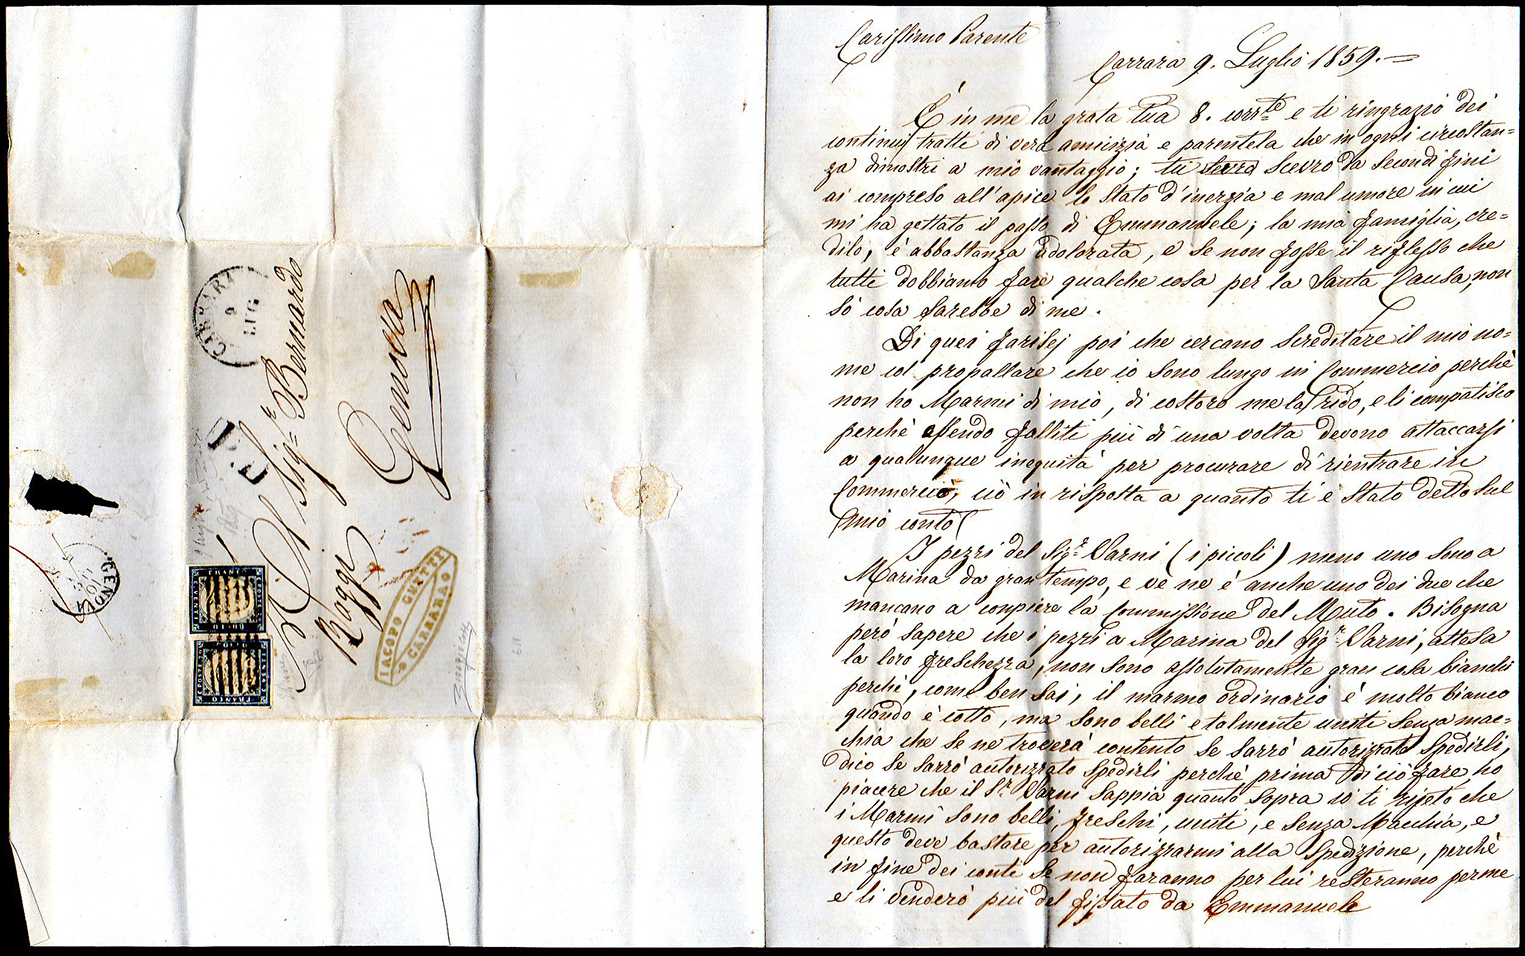 CARRARA
9
LUG
P.D.
Al Sig.r Bernardo
Raggi
Genova
IACOPO GHETTI
CARRARA
GENOVA
10
Carissimo Parente
Carrara 9. Luglio 1859.=
È in me la grata tua 8. corr.te e ti ringrazio dei
continui tratti di vera amicizia e parentela che in ogni circostan=
za dimostri a mio vantaggio; tu scevro da secondi fini
ai compreso all'apice lo stato d'inerzia e mal umore in cui
mi ha gettato il passo di Emmanuele; la mia famiglia, cre=
dilo, è abbastanza adolorata, e se non fosse il riflesso che
tutti dobbiamo fare qualche cosa per la Santa Causa, non
sò cosa sarebbe di me.
Di quei farisej poi che cercano screditare il mio no=
me col propallare che io sono lungo in Commercio perchè
non ho Marmi di mio, di costoro me la rido, e li compatisco
perchè essendo falliti più di una volta devono attaccarsi
a qualunque inequità per procurare di rientrare in
Commercio, ciò in risposta a quanto ti è stato detto sul
mio conto
I pezzi del Sig.r Varni (i piccoli) meno uno sono a
Marina da gran tempo, e ve ne è anche uno dei due che
mancano a conpiere la Commissione del Muto. Bisogna
però sapere che i pezzi a Marina del Sig.r Varni, attesa
la loro freschezza, non sono assolutamente gran cosa bianchi
perchè, come ben sai, il marmo ordinario è molto bianco
quando è cotto, ma sono belli e talmente uniti senza mac=
chia che se ne troverà contento se sarrò autorizzato spedirli,
dico se sarrò autorizzato spedirli perchè prima di ciò fare, ho
piacere che il S.r Varni sappia quanto sopra io ti ripeto che
i Marmi sono belli, freschi, uniti, e senza Macchia, e
questo deve bastare per autorizzarmi alla spedizione, perchè
in fine dei conti se non faranno per lui resteranno per me
e li venderò più del fissato da Emmanuele